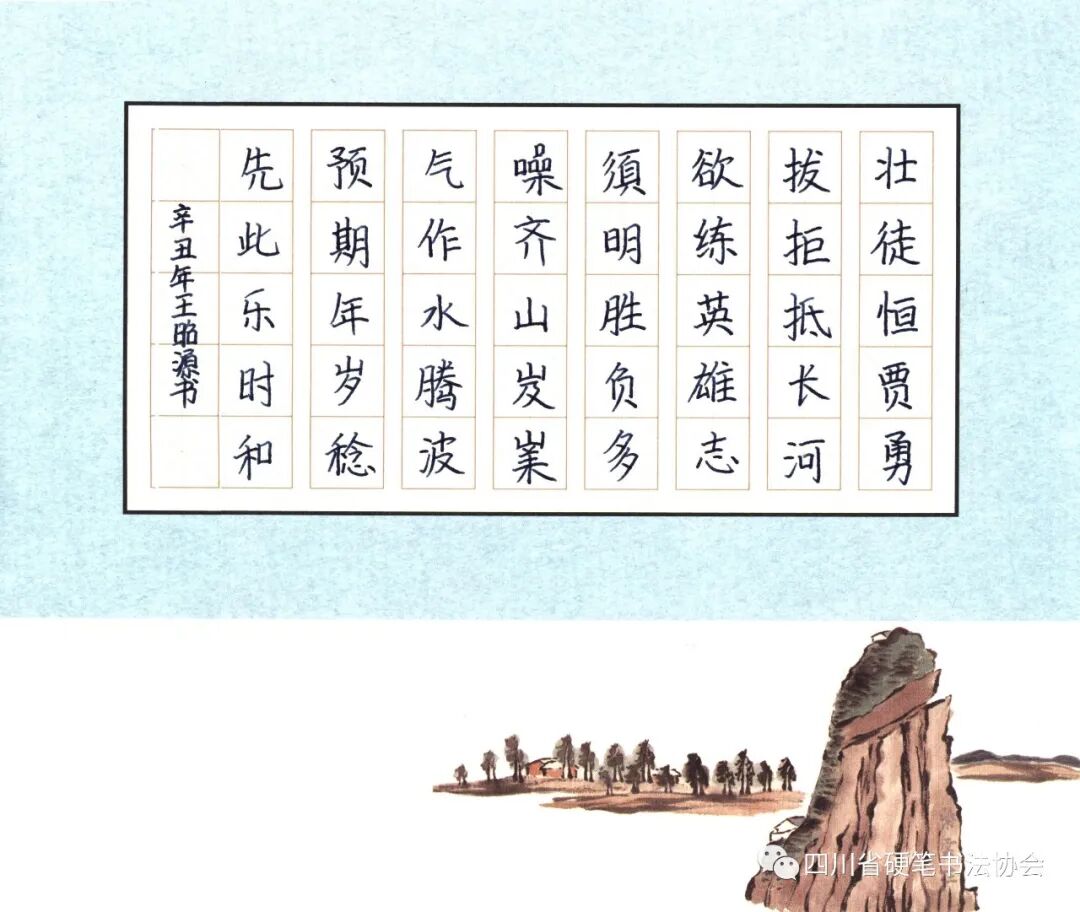 壮徒恒贾勇
拔拒抵长河
欲练英雄志
須明胜负多
噪齐山岌嶪
气作水腾波
预期年岁稔
先此乐时和
辛丑年王昭源书
四川省硬笔书法协会